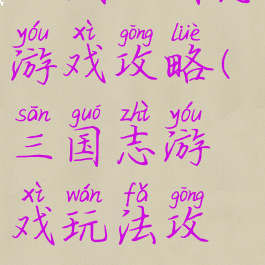 yóu xì gōng lüè
游戏攻略(
sān guó zhì yóu
三国志游
xì wán fǎ gōng
戏玩法攻